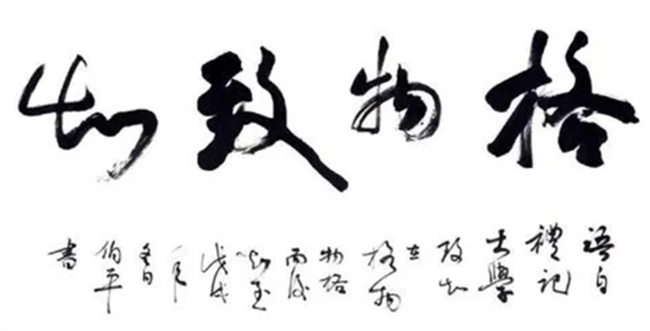 格物致知
語自
禮記
大學
致知
在
格物
物格
而後
知至
戊戌
年
伯平
書